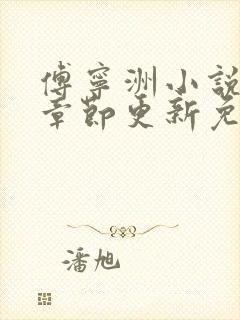 傅寧洲小說
章節更新免
潘旭